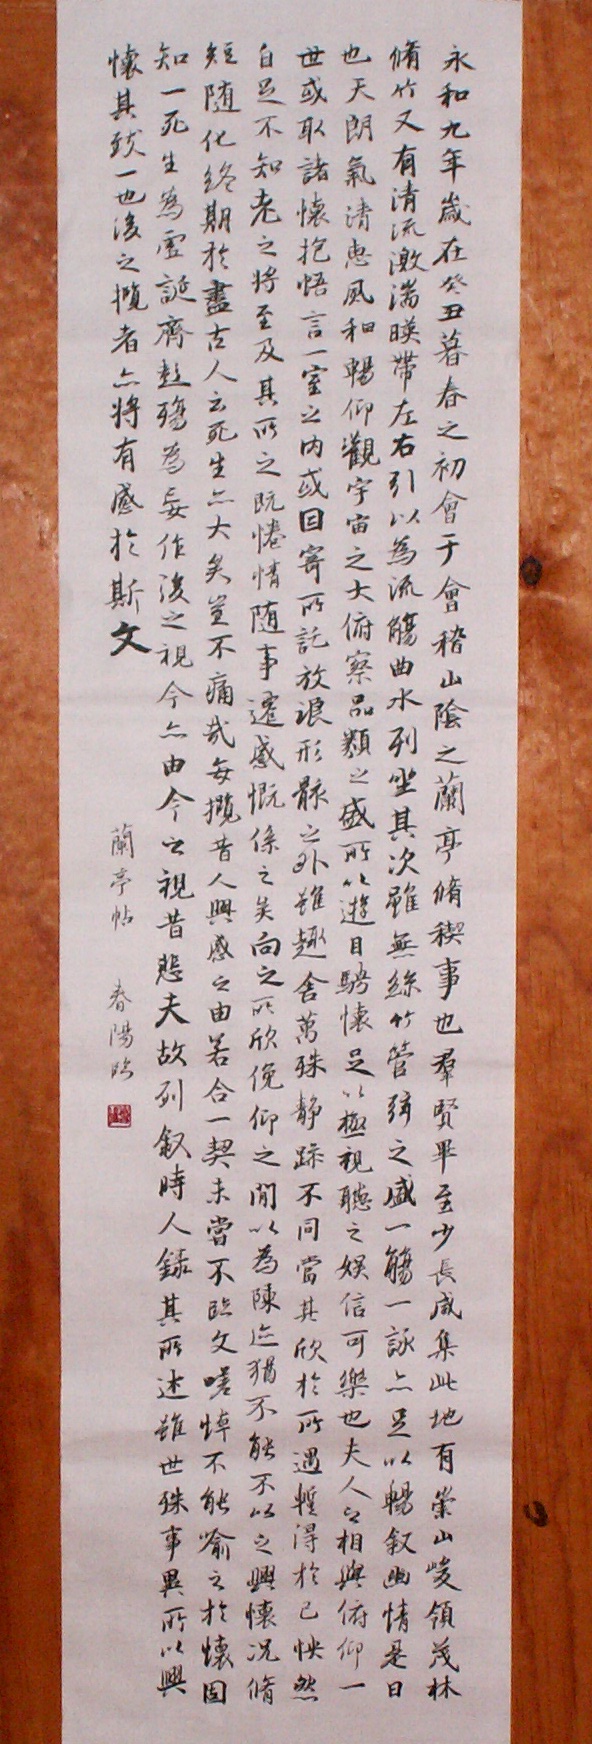 永和九年歲在癸丑暮春之初會于會稽山陰之蘭亭脩稧事也羣賢畢至少長咸集此地有崇山峻領茂林
脩竹又有清流激湍暎帶左右引以為流觴曲水列坐其次雖無絲竹管弦之盛一觴一詠亦足以暢叙幽情是日
也天朗氣清惠風和暢仰觀宇宙之大俯察品類之盛所以遊目騁懷足以極視聽之娛信可樂也夫人之相與俯仰一
世或取諸懷抱悟言一室之内或因寄所託放浪形骸之外雖趣舍萬殊静躁不同當其欣於所遇暫得於己怏然
自足不知老之將至及其所之既惓情随事遷感慨係之矣向之所欣俛仰之閒以為陳迹猶不能不以之興懷况脩
短随化終期於盡古人云死生亦大矣豈不痛哉每攬昔人興感之由若合一契未嘗不臨文嗟悼不能喻之於懷固
知一死生為虛誕齊彭殤為妄作後之視今亦由今之視昔悲夫故列叙時人録其所述雖世殊事異所以興
懷其致一也後之攬者亦將有感於斯文
蘭亭帖 春陽臨